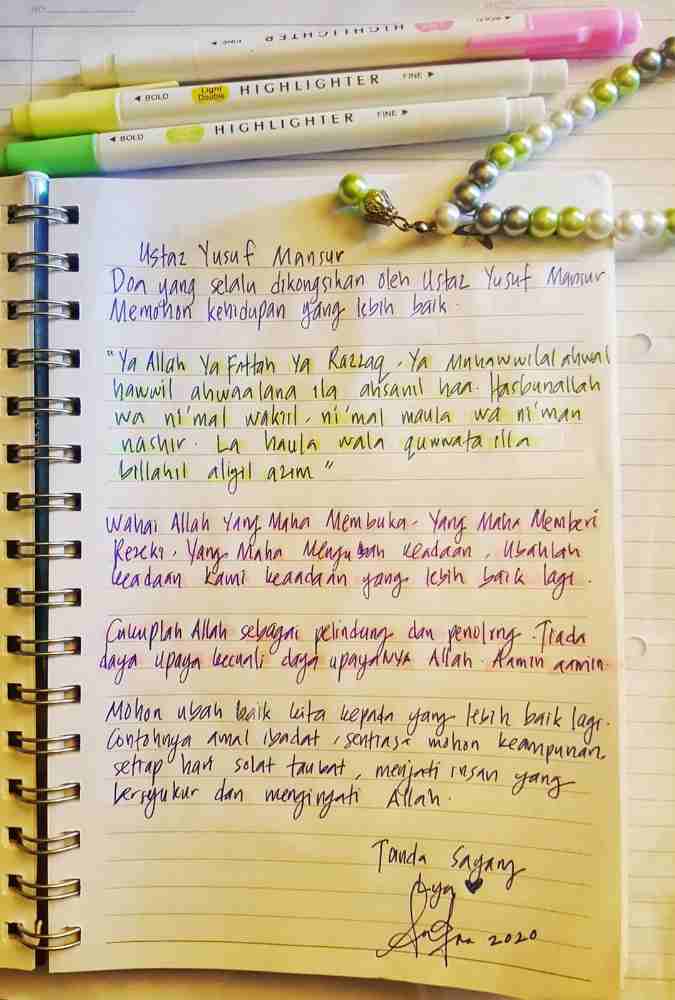 HIGHLIGHTER
FINE
BOLD
BOLD
Light
Double
HIGHLIGHTER
FINE
BOLD
HIGHLIGHTER
FINE
Ustaz Yusuf Mansur
Doa yang selalu dikongsikan oleh Ustaz Yusuf Mansur
Memohon kehidupan yang lebih baik.
"Ya Allah Ya Fattah Ya Razzaq, Ya Muhawwilal ahwal
hawwil ahwaalana ila ahsanil haa. Hasbunallah
wa ni'mal wakiil, ni'mal maula wa ni'man
nashir. La haula wala quwwata illa
billahil aliyil azim"
Wahai Allah Yang Maha Membuka, Yang Maha Memberi
Rezeki, Yang Maha Mengubah Keadaan, Ubahlah
keadaan kami keaadaan yang lebih baik lagi.
Cukuplah Allah sebagai pelindung dan penolong. Tiada
daya upaya kecuali daya upayaNYA Allah. Aamin aamin
Mohon ubah baik kita kepada yang lebih baik lagi.
Contohnya amal ibadat, sentiasa mohon keampunan,
setiap hari solat taubat, menjati insan yang
bersyukur dan mengingati Allah.
Tanda Sayang
2020